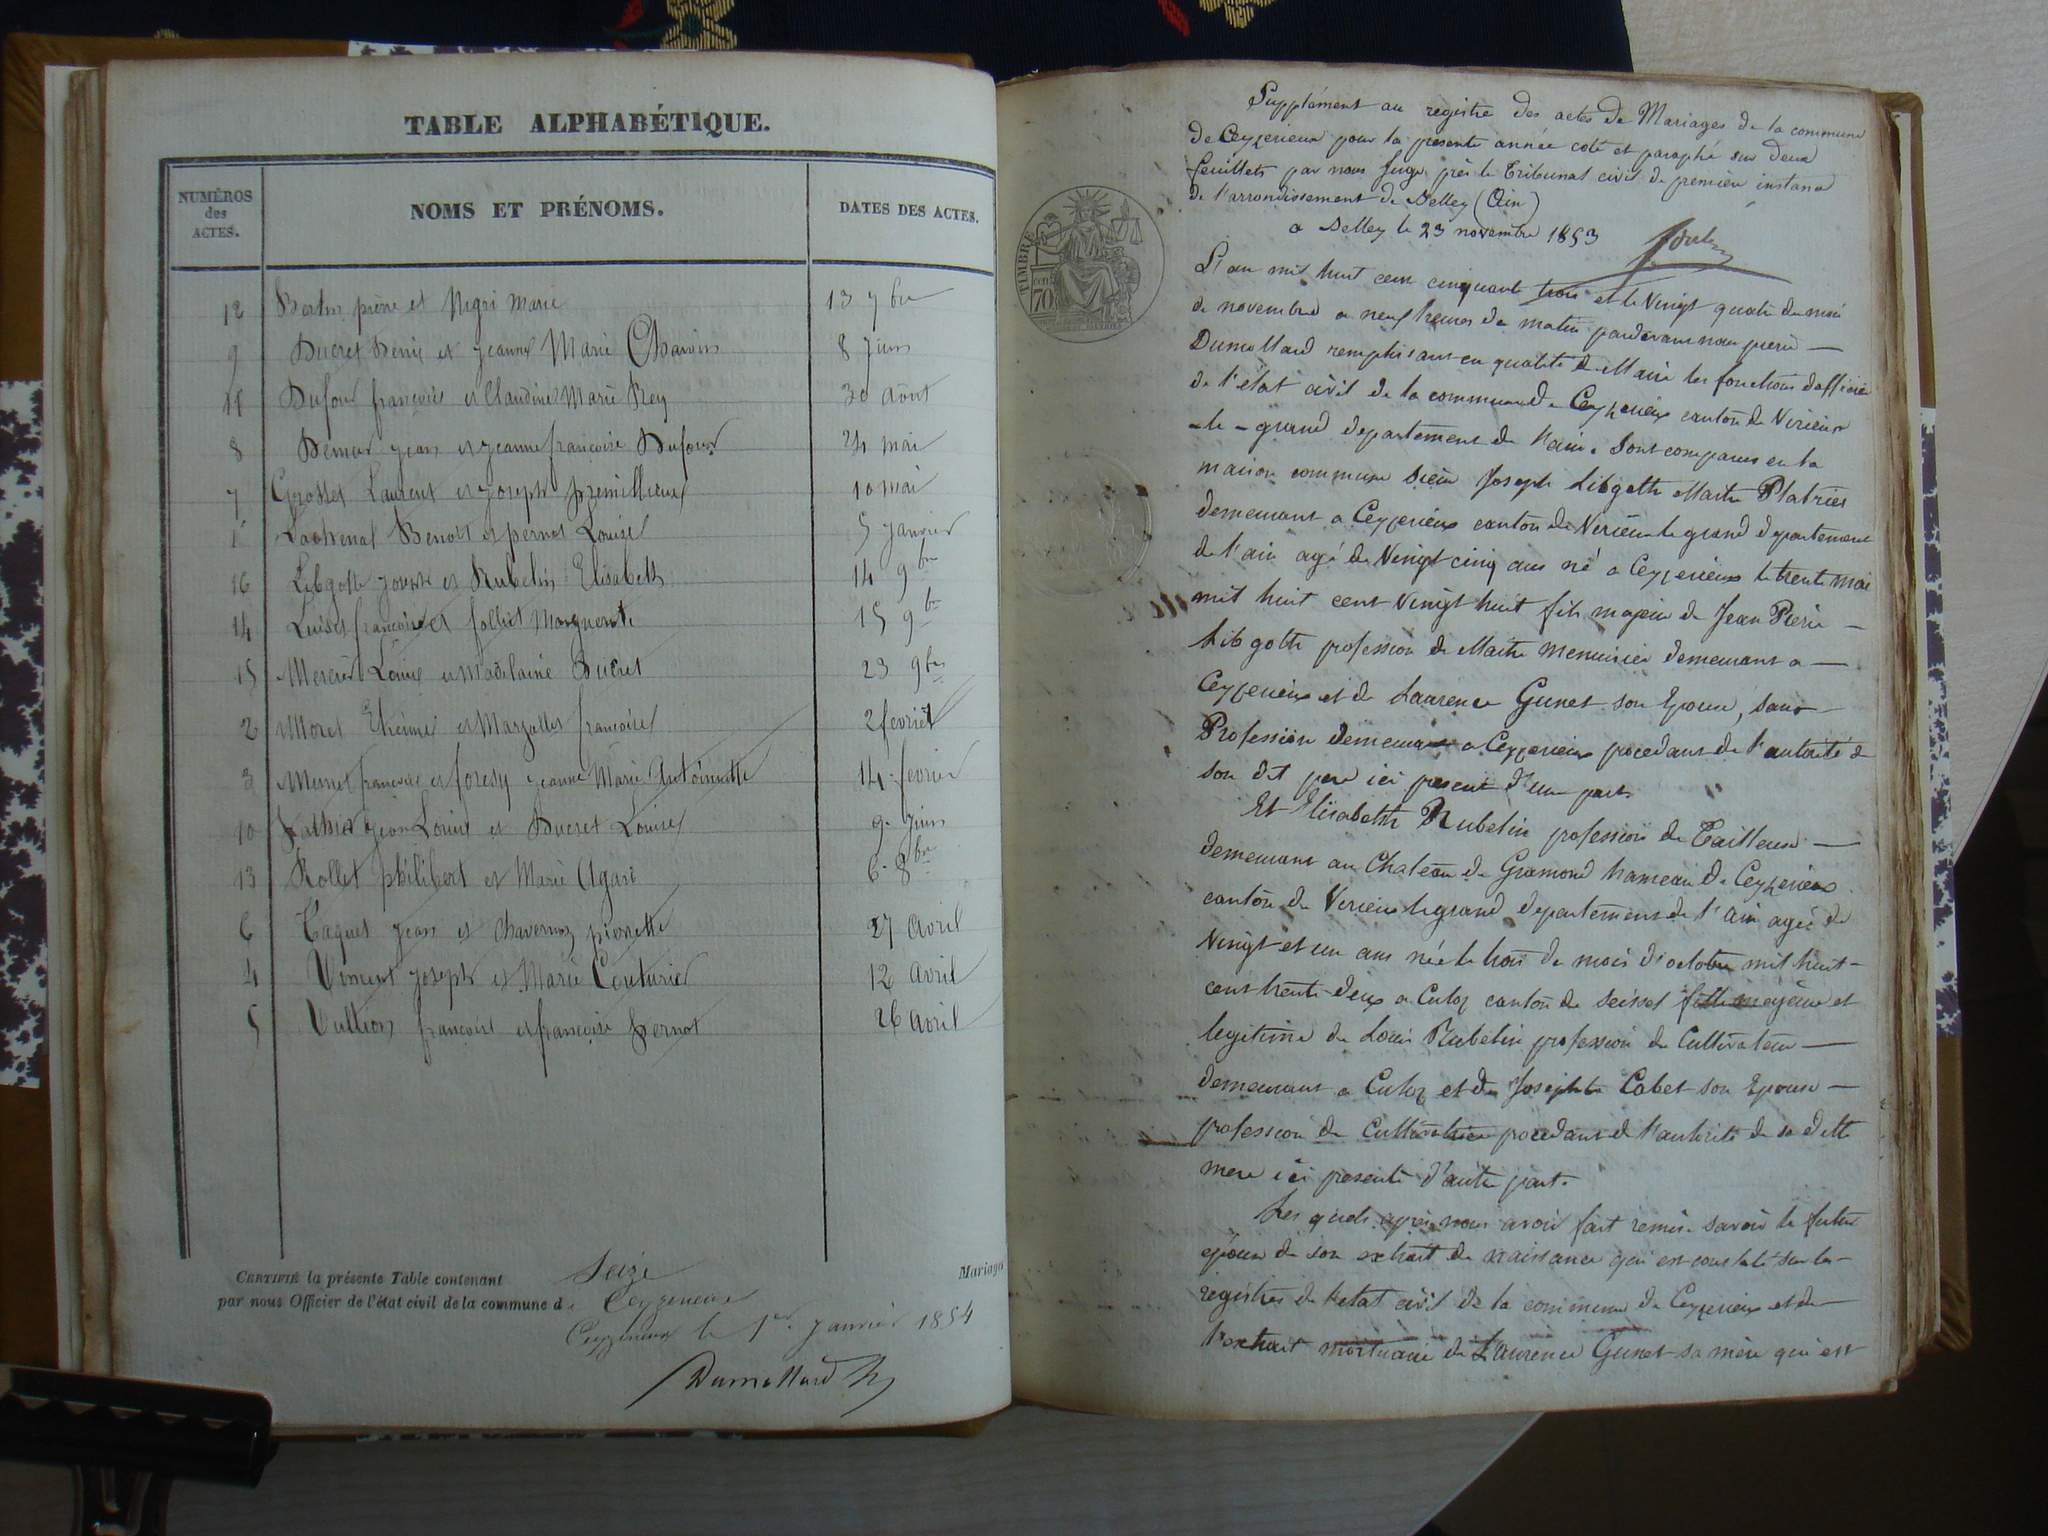 TABLE ALPHABÉTIQUE.
NUMÉROS des ACTES.
NOMS ET PRÉNOMS.
DATES DES ACTES.
12 Bertin pierre et Nigri Marie 13 7bre
9 Ducret Denis et jeanne Marie Charvin 8 juin
11 Dufour françois et Claudine Marie Rey 30 Août
8 jean et jeanne françoise Dufour 24 mai
7 Grosset Laurent et joseph premillieux 10 mai
1 Lachenal Benoit et pernot Louise 5 janvier
16 Libgotte joseph et Rubelin Elisabeth 14 9bre
14 françois et folliet Marguerite 15 9bre
15 Mercier Louis et Madelaine Ducret 23 9bre
2 Moret Etienne et françoise 2 fevrier
3 françois et jeanne Marie Antoinette 14 fevrier
10 jean Louis et Ducret Louise 9 juin
13 Rollet philibert et Marie Agari 6 8bre
6 Taquet jean et Chavernoz pierrette 27 avril
4 Vincent joseph et Marie Couturier 12 avril
5 Vullion françois et françoise pernot 26 avril
CERTIFIÉ la présente Table contenant Seize Mariage
par nous Officier de l'état civil de la commune d e Ceyzerieux
Ceyzerieux le 1er janvier 1854
Dumollard
Supplément au registre des actes de Mariages de la commune
de Ceyzerieux pour la presente année coté et paraphé sur deux
feuillets par nous Juge près le Tribunal civil de première instance
de l'arrondissement de Belley (Ain)
a Belley le 23 novembre 1853
TIMBRE
70
L'an mil huit cent cinquante trois et le Vingt quatre du mois
de novembre a neuf heures du matin pardevant nous pierre —
Dumollard remplissant en qualité de Maire les fonctions d'officier
de l'état civil de la commune de Ceyzerieux canton de Virieux
-le-grand departement de l'ain. Sont comparus en la
maison commune sieur Joseph Libgotte Maitre Platrier
demeurant a Ceyzerieux canton de Virieux le grand departement
de l'ain agé de Vingt cinq ans né a Ceyzerieux le trente mai
mil huit cent Vingt huit fils majeur de Jean Pierre —
Libgotte profession de Maitre menuisier demeurant a —
Ceyzerieux et de Laurence Gunet son Epouse, sans
Profession demeurant a Ceyzerieux procedant de l'autorité de
son dit pere ici present d'une part.
Et Elisabeth Rubelin profession de Tailleuse —
demeurant au Chateau de Gramond hameau de Ceyzerieux
canton de Virieux le grand departement de l'ain agée de
Vingt et un ans née le trois du mois d'octobre mil huit-
cent trente-deux a Culoz canton de Seissel fille majeure et
legitime de Louis Rubelin profession de Cultivateur —
demeurant a Culoz et de Josephte Cabet son Epouse —
profession de Cultivatrice procedant de l'autorité de sa ditte
mere ici presente d'autre part.
Les quels après nous avoir fait remise savoir le futur
epoux de son extrait de naissance qui est constaté sur les
registres de l'etat civil de la commune de Ceyzerieux et de
l'extrait mortuaire de Laurence Gunet sa mère qui est